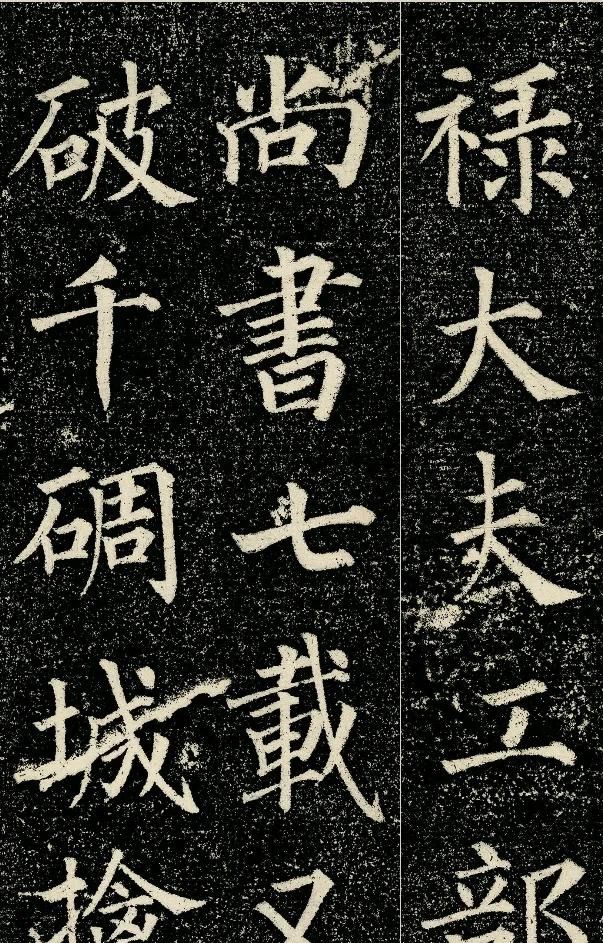 禄大夫工部
尚書七載又
破千碉城擒